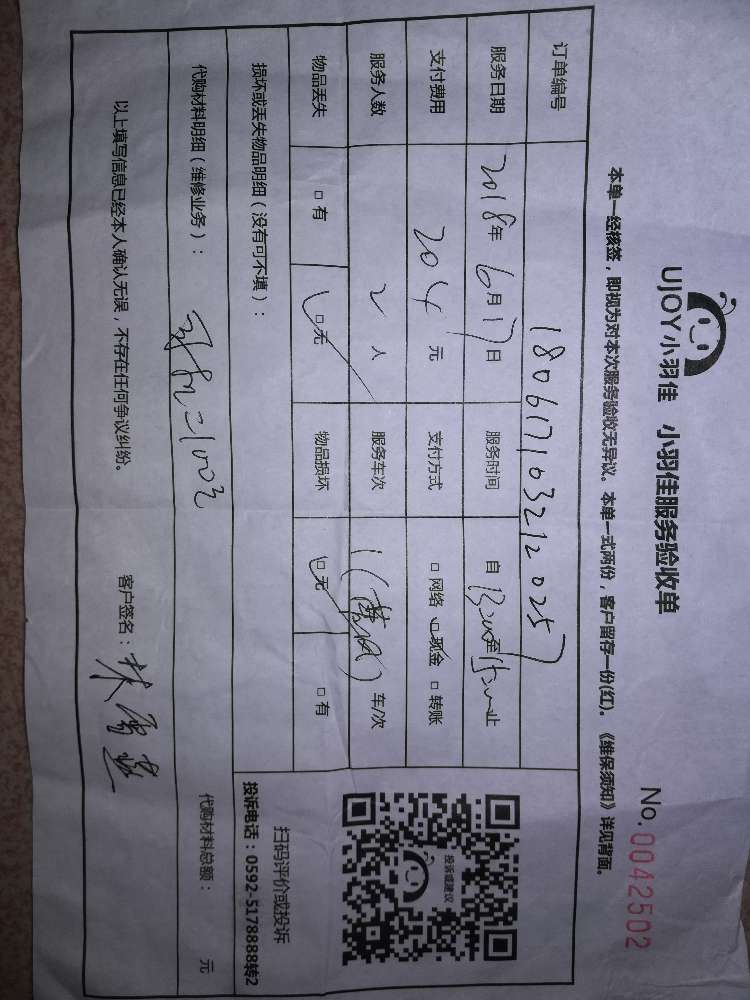 UJOY小羽佳 小羽佳服务验收单
No.0042502
本单一经核签，即视为对本次服务验收无异议。本单一式两份，客户留存一份(红)。《维保须知》详见背面。
订单编号 1806171632120257
服务日期 2018年6月17日 服务时间 自13:00至15:00止
支付费用 204元 支付方式 □网络 □现金 □转账
服务人数 2人 服务车次 1( )车/次
物品丢失 □有 □无 物品损坏 □无 □有
损坏或丢失物品明细（没有可不填）：
投诉或建议
扫码评价或投诉
投诉电话：0592-5178888转2
代购材料明细（维修业务）： 代购材料总额： 元
以上填写信息已经本人确认无误，不存在任何争议纠纷。 客户签名：